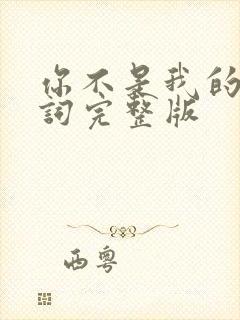 你不是我的
詞完整版
西粵